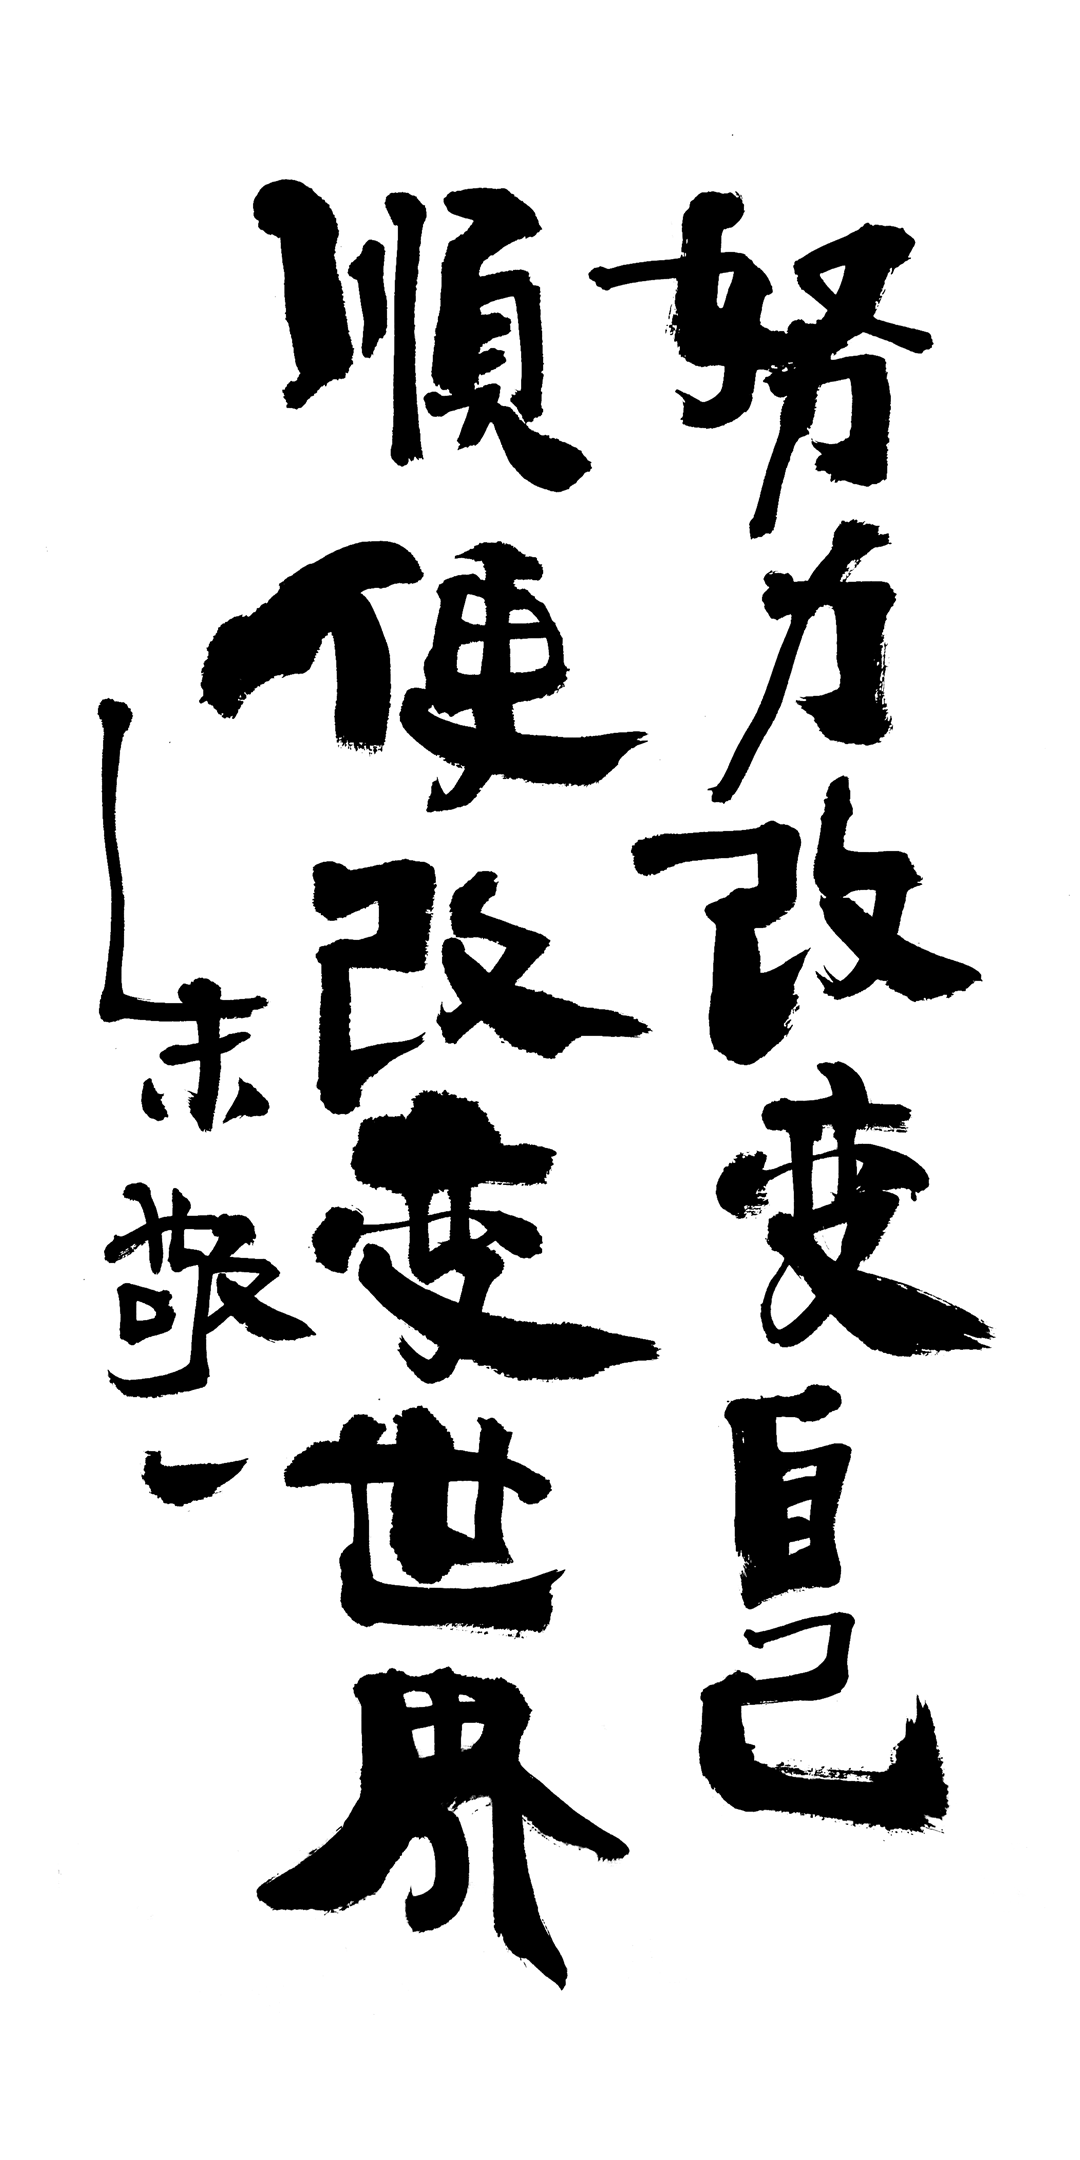 努力改变自己
順便改变世界
朱敬一